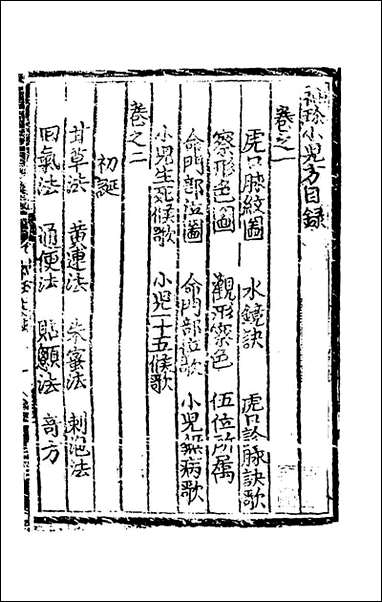 袖珍小兒方目録
卷之一
虎口脉紋圖 水鏡訣 虎口診脉訣歌
察形色圖 觀形察色 伍位所属
命門部位圖 命門部位歌 小兒脈病歌
小兒生死候歌 小兒一十五候歌
卷之二
初誕
甘草法 黄連法 朱蜜法 剌泡法
回氣法 通便法 貼顖法 奇方